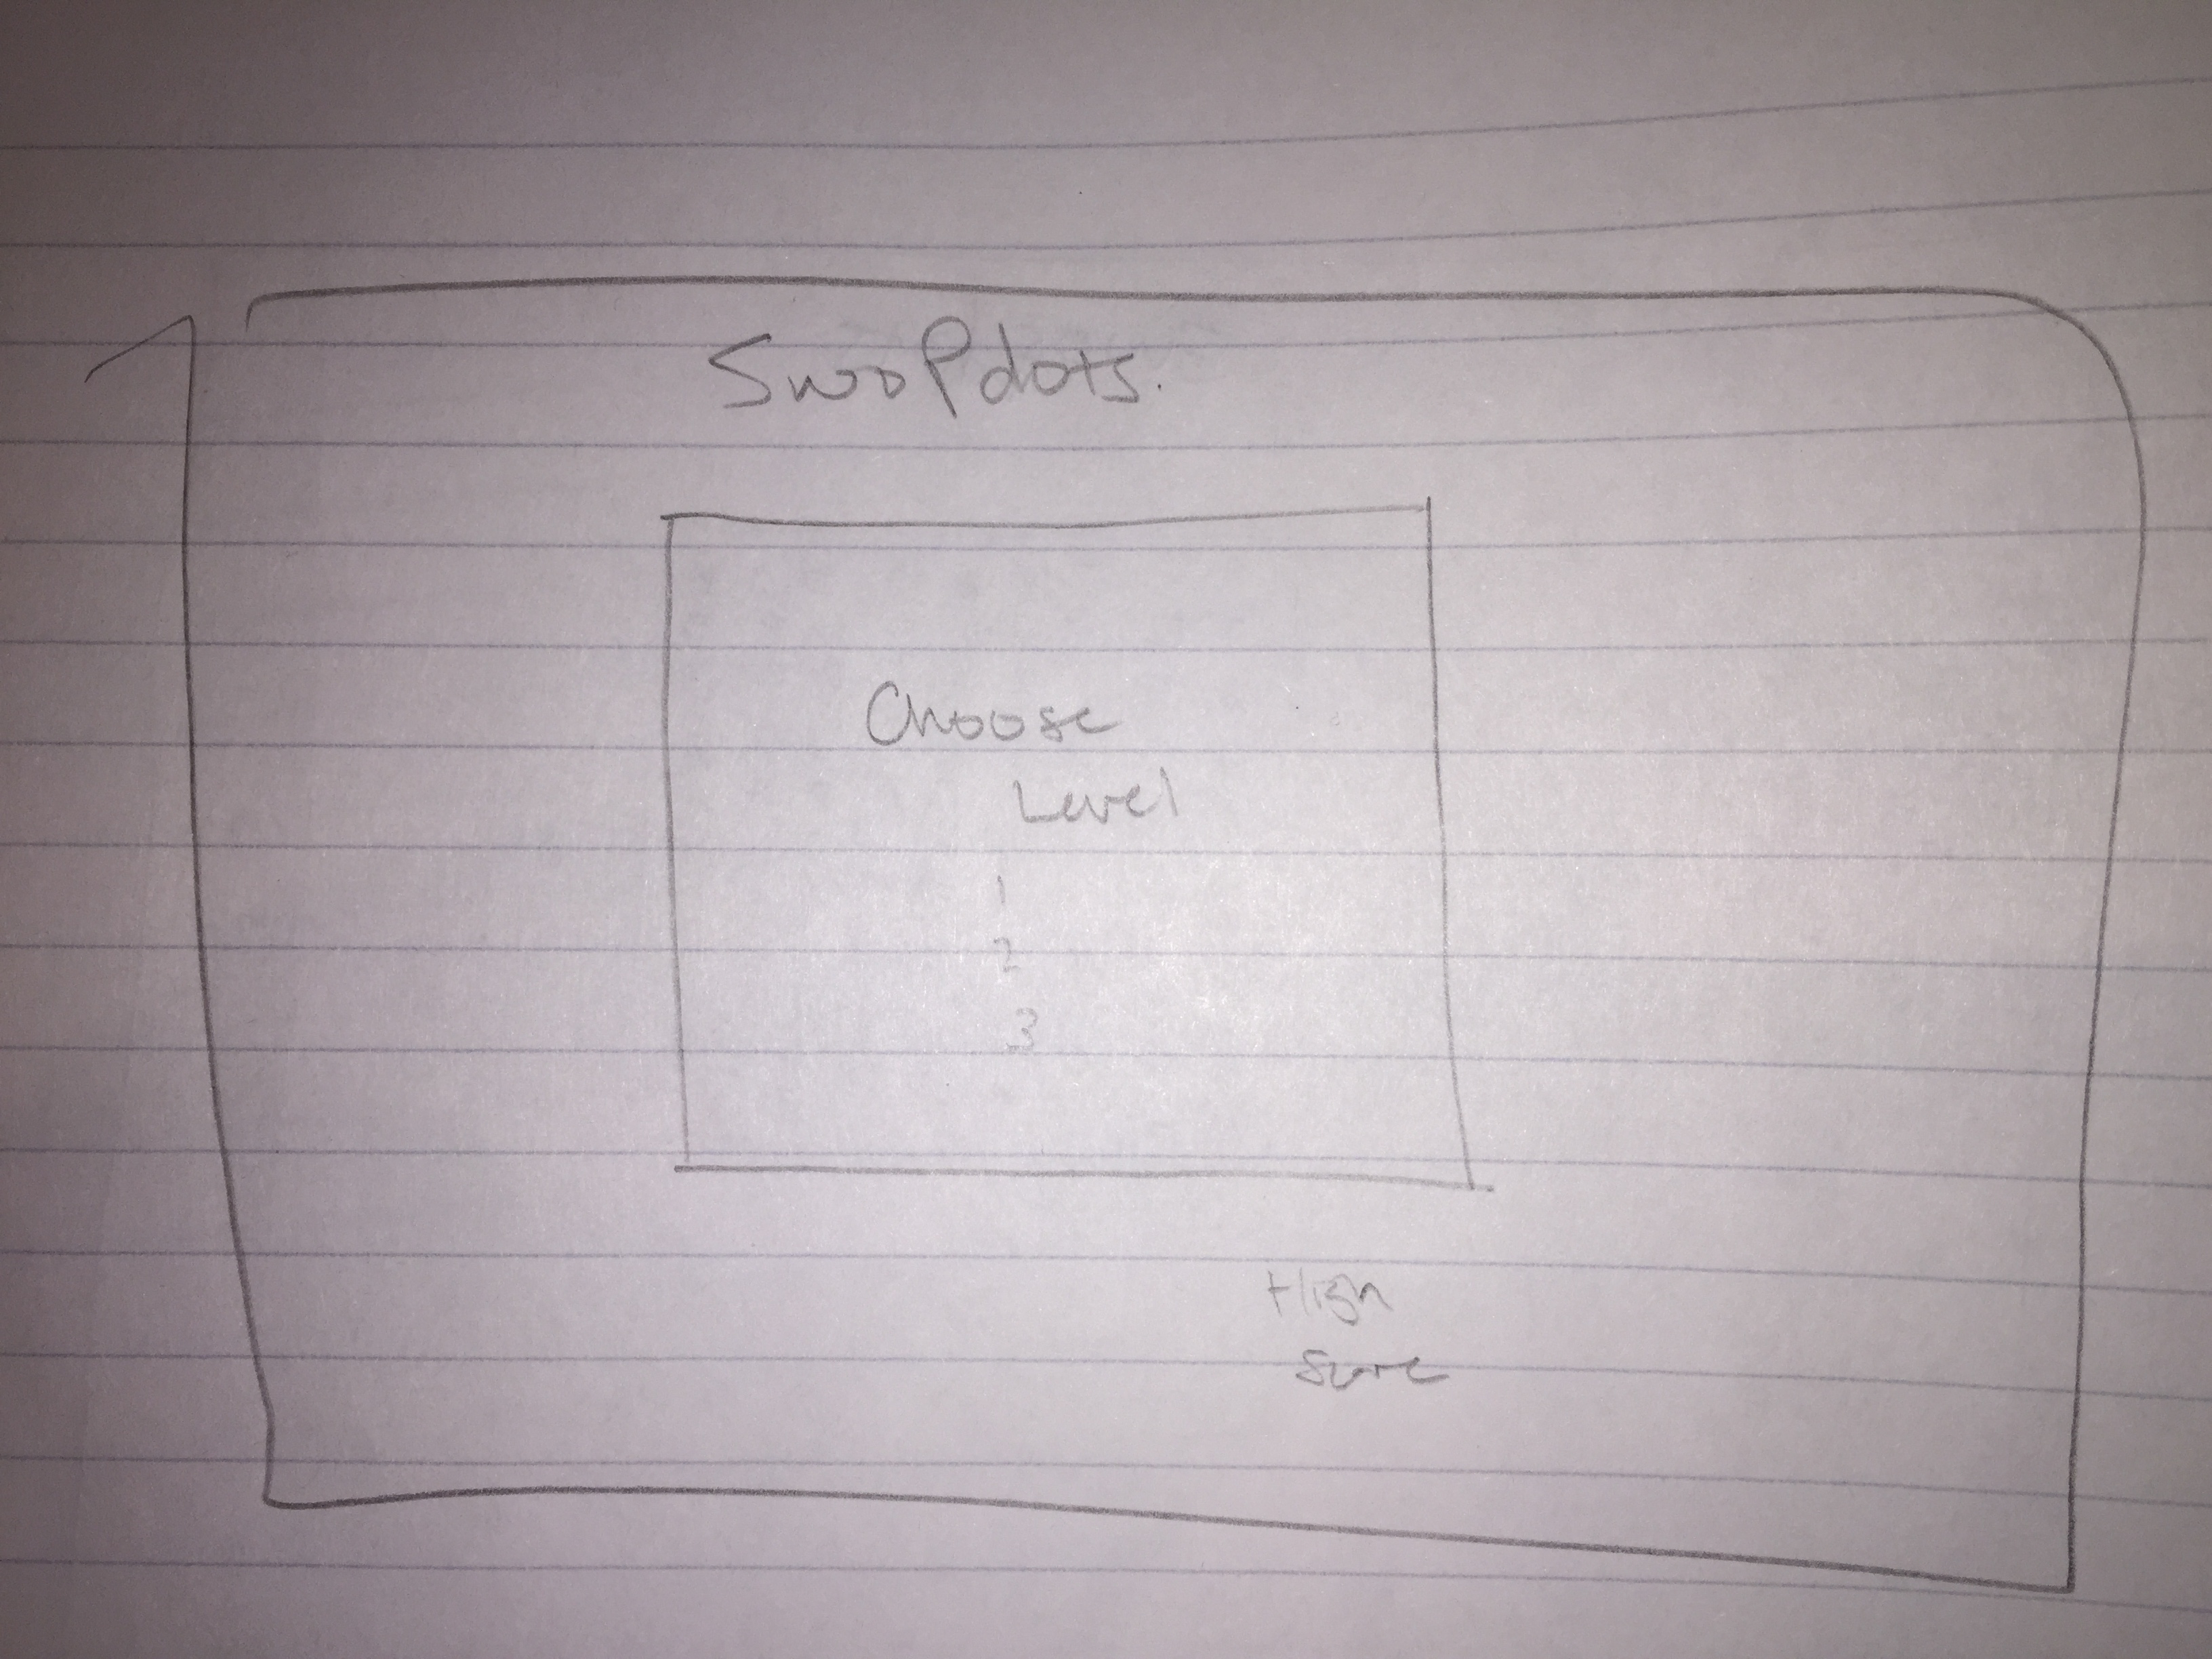 Swapdots.
Choose
Level
1
2
3
High
Score